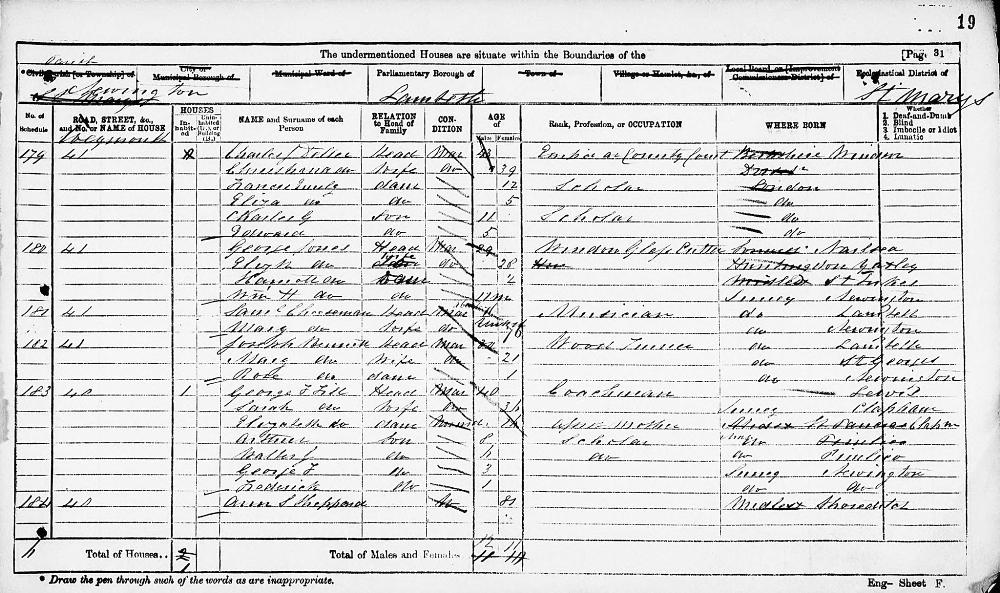 19
The undermentioned Houses are situate within the Boundaries of the [Page 31
Parish
Civil Parish [or Township] of City or Municipal Borough of Municipal Ward of Parliamentary Borough of Town of Village or Hamlet, &c., of Local Board or [Improvement Commissioners District] of Ecclesiastical District of
Newington Lambeth St Marys
No. of Schedule ROAD, STREET, &c., and No. or NAME of HOUSE HOUSES Inhabited Uninhabited (U.), or Building (B.) NAME and Surname of each Person RELATION to Head of Family CONDITION AGE of Males Females Rank, Profession, or OCCUPATION WHERE BORN Whether 1. Deaf-and-Dumb 2. Blind 3. Imbecile or Idiot 4. Lunatic
179 41 Charles Head Mar 43 County Court Berkshire Windsor
Christiana do Wife do 39
Frances daur 12 Scholar London
Eliza do do 5 do
Charles G Son 11 Scholar do
Edward do 5 do
180 41 George Jones Head Mar 29 Window Glass Cutter Nailsea
Elizth do Wife do 28 Huntingdon Yaxley
Hannah do Daur 2 Middlesex St Lukes
Wm H. do do 11m Surrey Newington
181 41 Saml Cheeseman Head Mar Musician do Lambeth
Mary do Wife do do Newington
182 41 Joseph Bennett Head Mar 22 Wood Turner do Lambeth
Mary do Wife do 21 do St Georges
Rose do daur 1 do Newington
183 40 1 George F Head Mar 40 Coachman Lewis
Sarah do Wife do 34 Surrey Clapham
Elizabeth do daur Mother
Arthur Son 8 Scholar do Pimlico
Walter J do 4 do do Pimlico
George F do 3 Surrey Newington
Frederick do 1 do do
184 40 Ann S Sheppard 81 Middlesex Shoreditch
4 Total of Houses.. 2 1 Total of Males and Females 12 11
* Draw the pen through such of the words as are inappropriate. Eng- Sheet F.